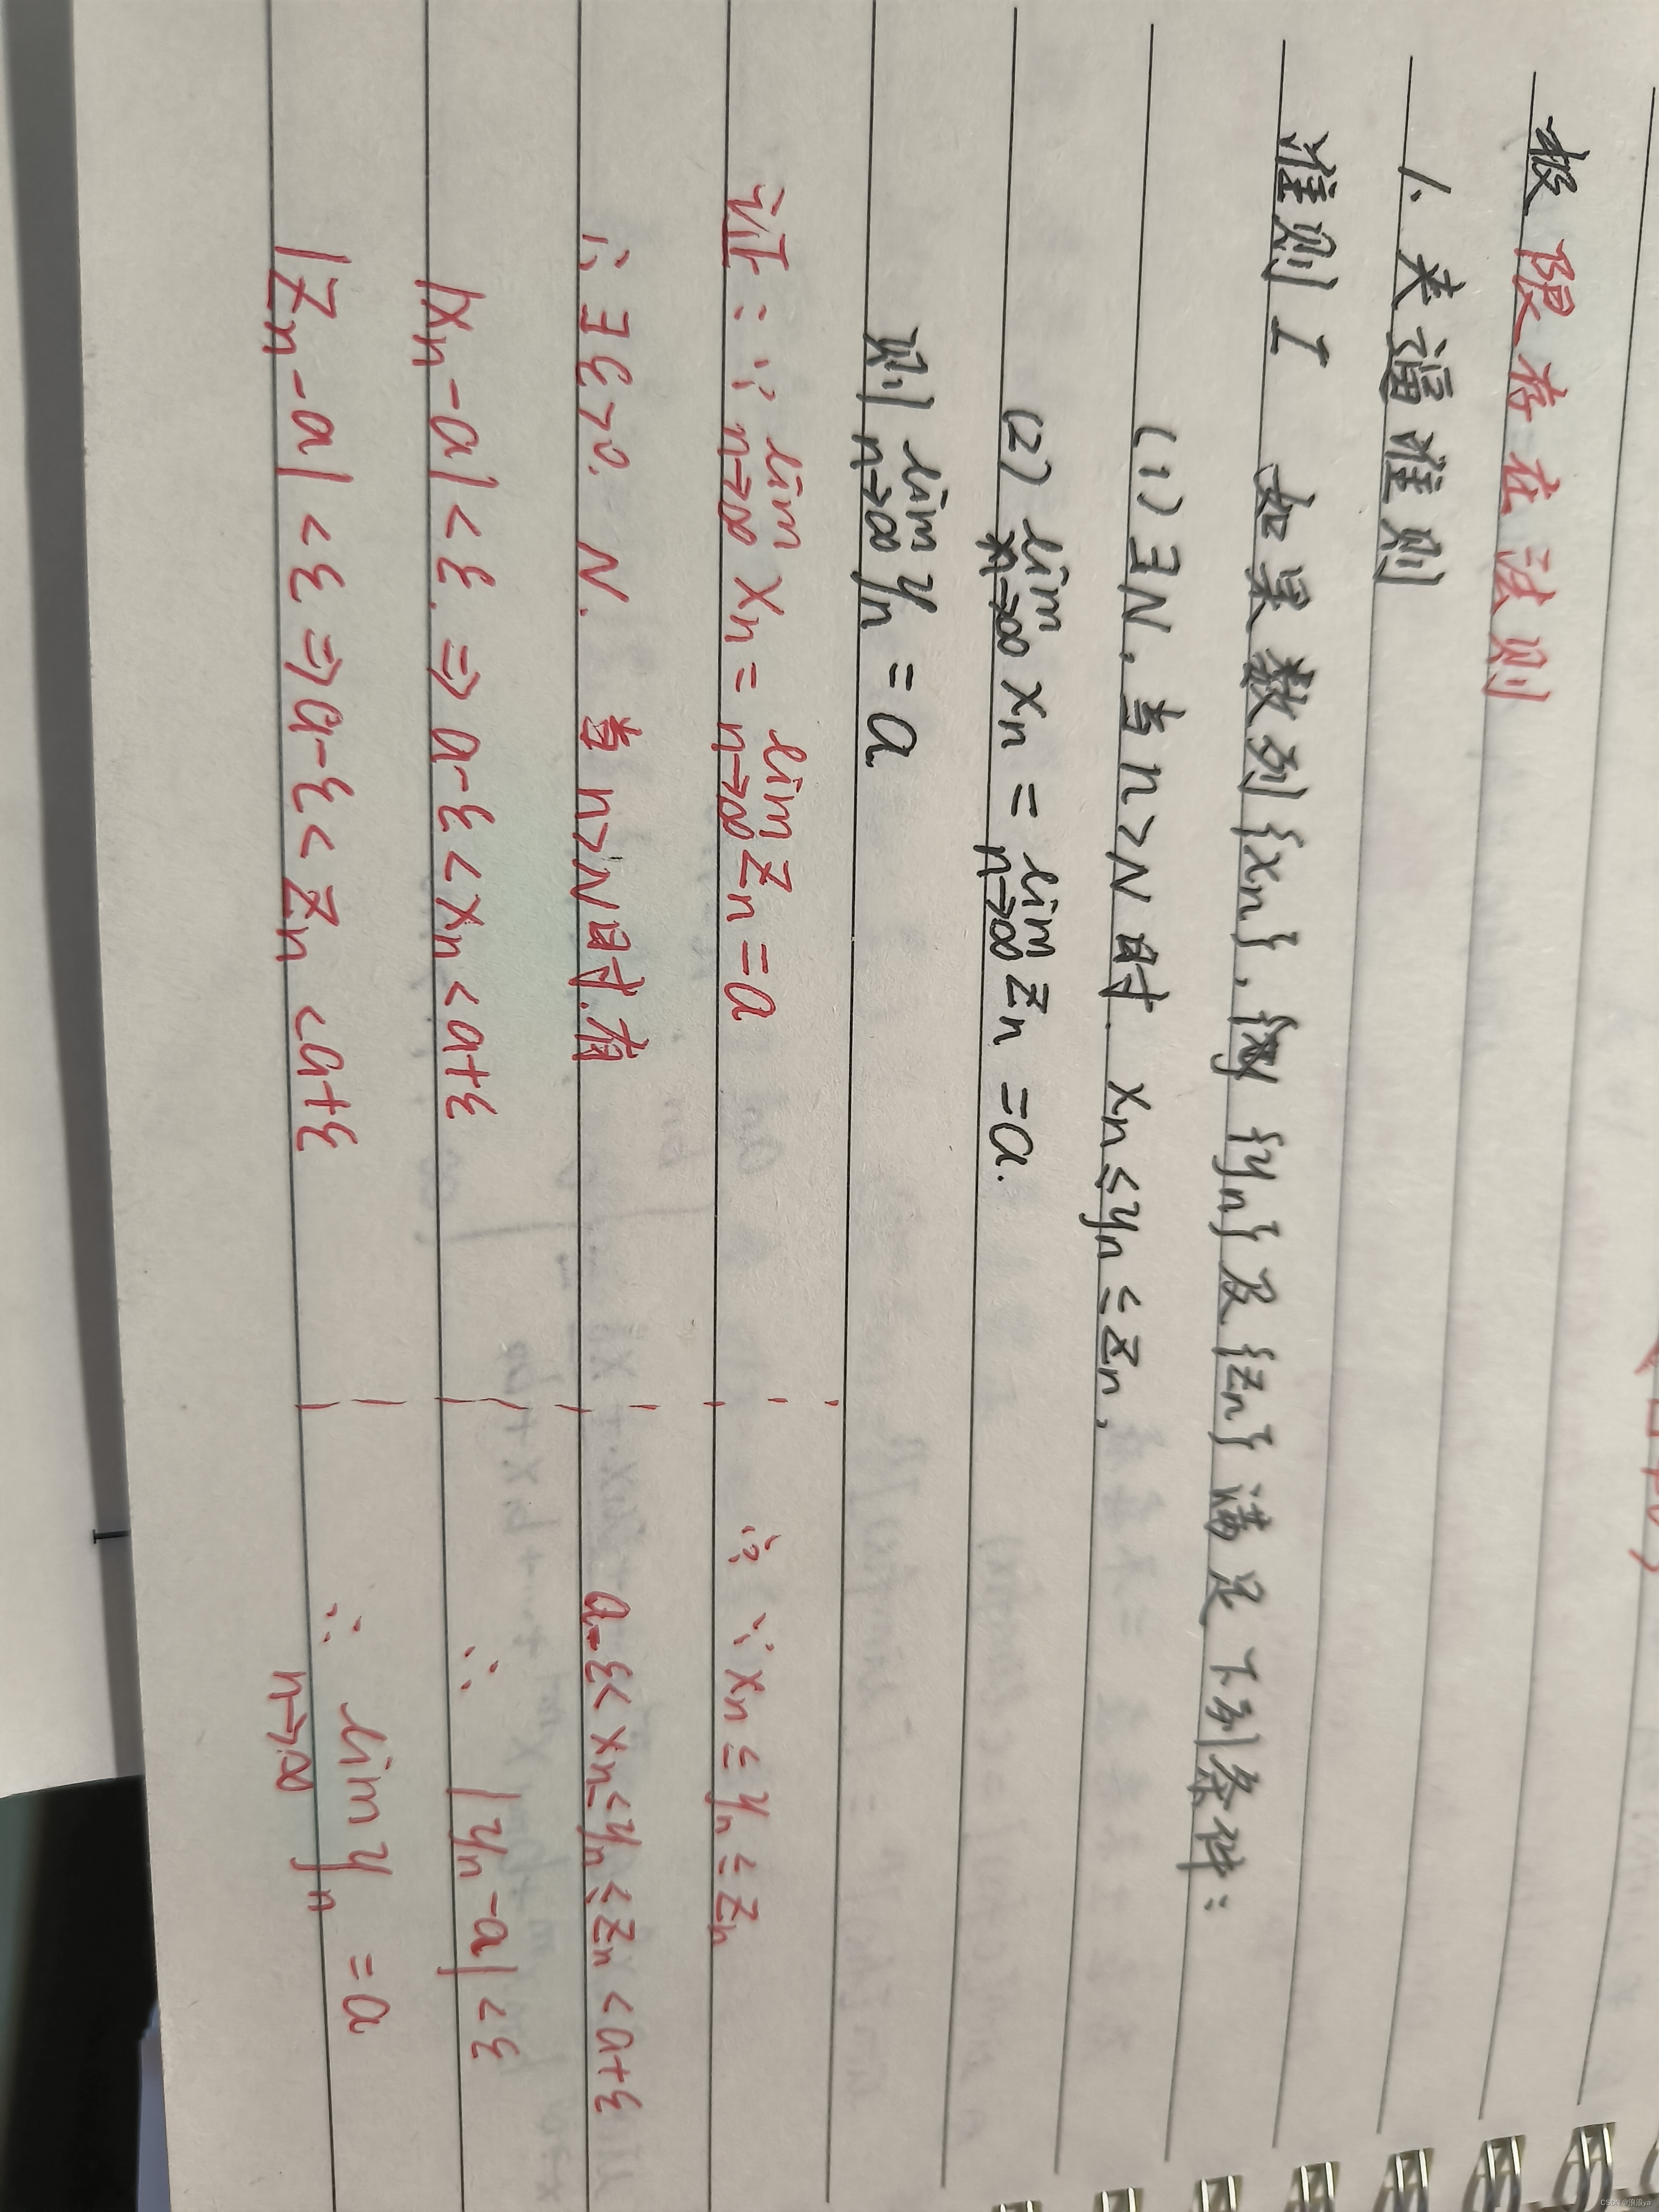 极限存在法则
1. 夹逼准则
准则 I 如果数列{xn}, {yn}及{zn}满足下列条件:
(1) ∃N, 当n>N时. xn≤yn≤zn,
(2) lim n→∞ xn = lim n→∞ zn = a.
则 lim n→∞ yn = a.
证: ∵ lim n→∞ xn = lim n→∞ zn = a
∴ ∃ε>0. N. 当n>N时.有
|xn-a|<ε. ⇒ a-ε<xn<a+ε
|zn-a|<ε ⇒ a-ε<zn<a+ε
∵ xn≤yn≤zn
a-ε<xn≤yn≤zn<a+ε
∴ |yn-a|<ε
∴ lim n→∞ yn = a
CSDN @浪浪ya